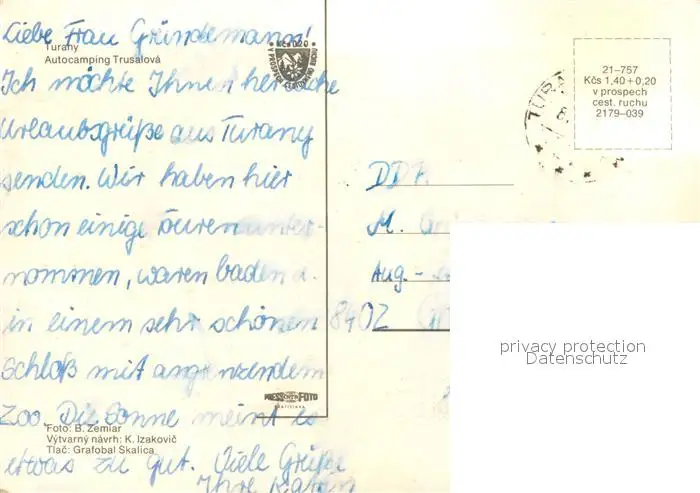 Liebe Frau Gründemann!
Turany
Autocamping Trusalová
Kčs 0,20
Ich möchte Ihnen herzliche
Urlaubsgrüße aus Turany
senden. Wir haben hier
schon einige Touren unter-
nommen, waren baden u.
in einem sehr schönen
Schloß mit angrenzendem
Zoo. Die Sonne meint es
etwas zu gut. Viele Grüße
Ihre Karin
PRESSFOTO
BRATISLAVA
Foto: B. Zemiar
Výtvarný návrh: K. Izakovič
Tlač: Grafobal Skalica
21–757
Kčs 1,40+0,20
v prospech
cest. ruchu
2179–039
TURA
DDR
M.
Aug.-
8402
privacy protection
Datenschutz